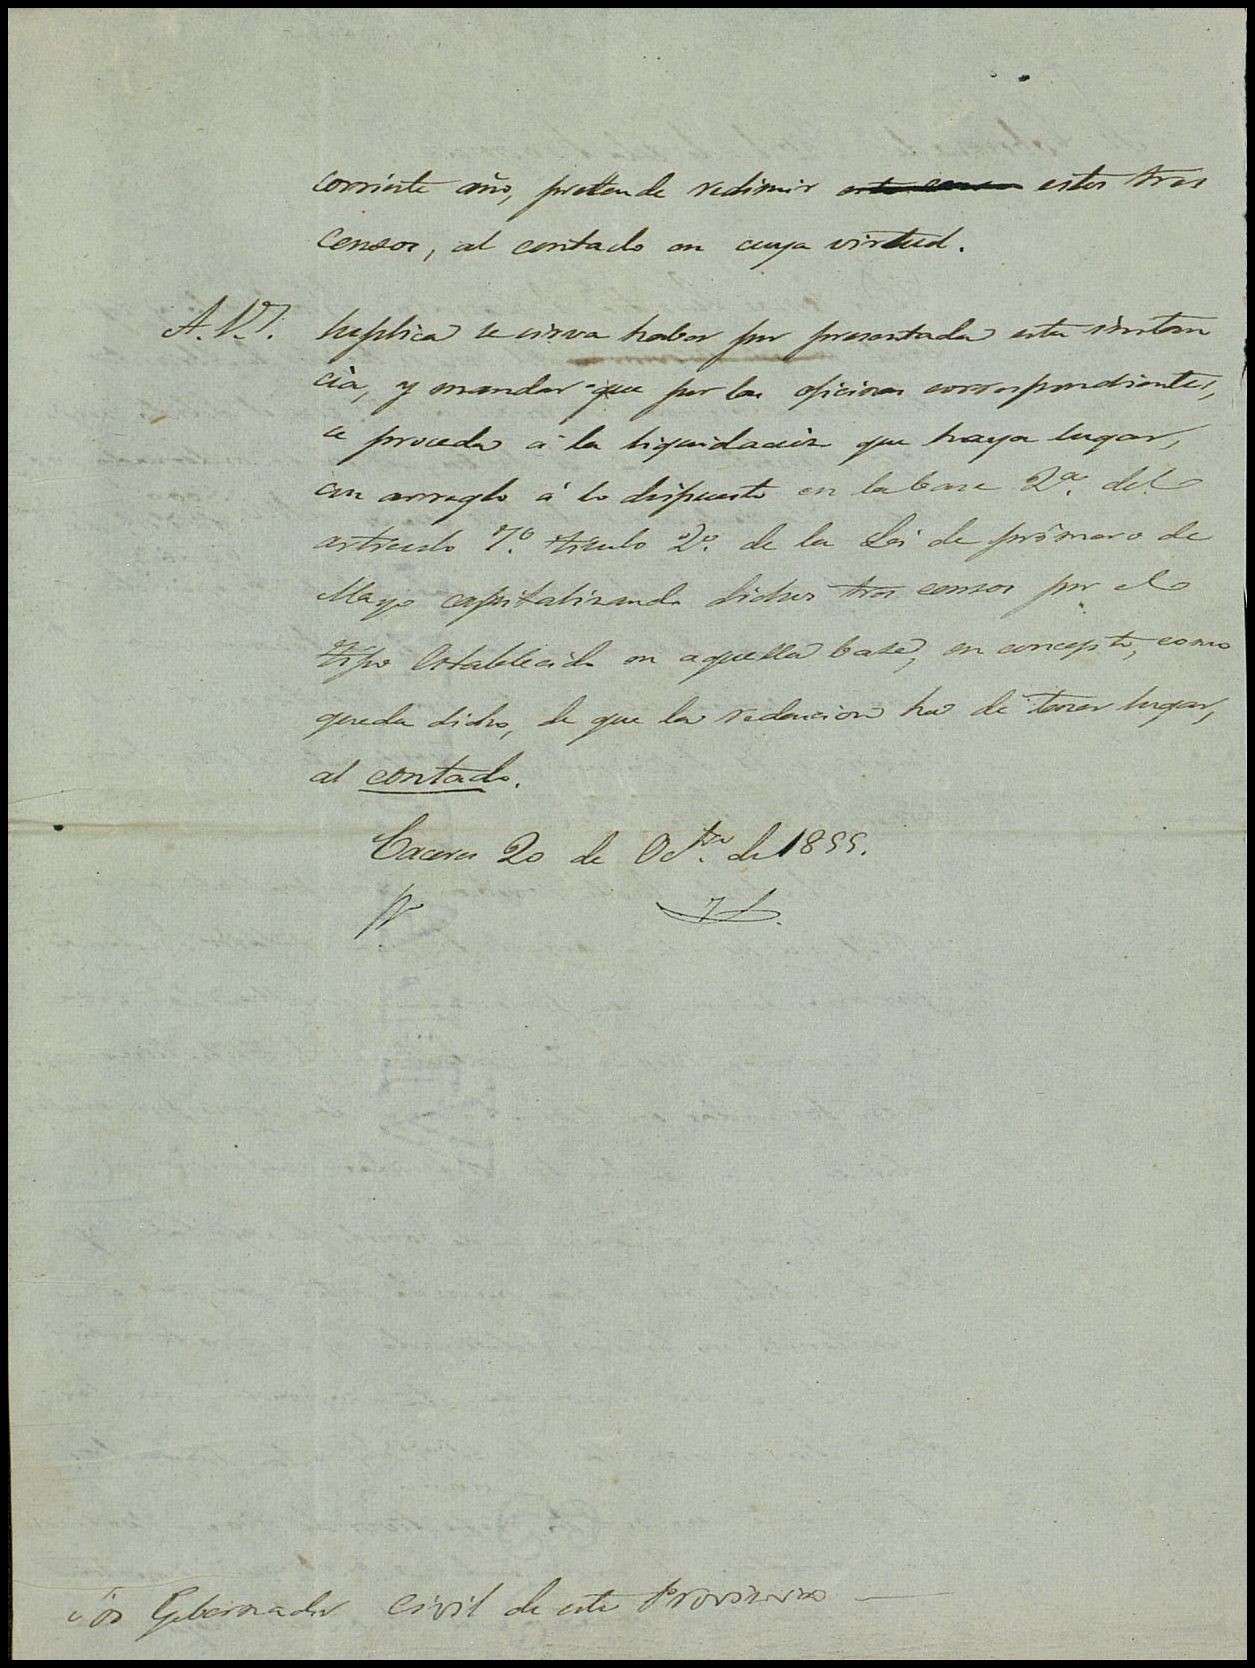 corriente año, pretende redimir este censo estos tres
censos, al contado en cuya virtud.
A. V. S. Suplica se sirva haber por presentada esta instan
cia, y mandar que por las oficinas correspondientes,
se proceda á la liquidacion que haya lugar,
con arreglo á lo dispuesto en la base 2ª. del
articulo 7º. titulo 2º. de la Lei de primero de
Mayo capitalizando dichos tres censos por el
tipo establecido en aquella base, en concepto, como
queda dicho, de que la redencion ha de tener lugar,
al contado.
Caceres 20 de Octre. de 1855.
Sor Gobernador Civil de esta Provincia